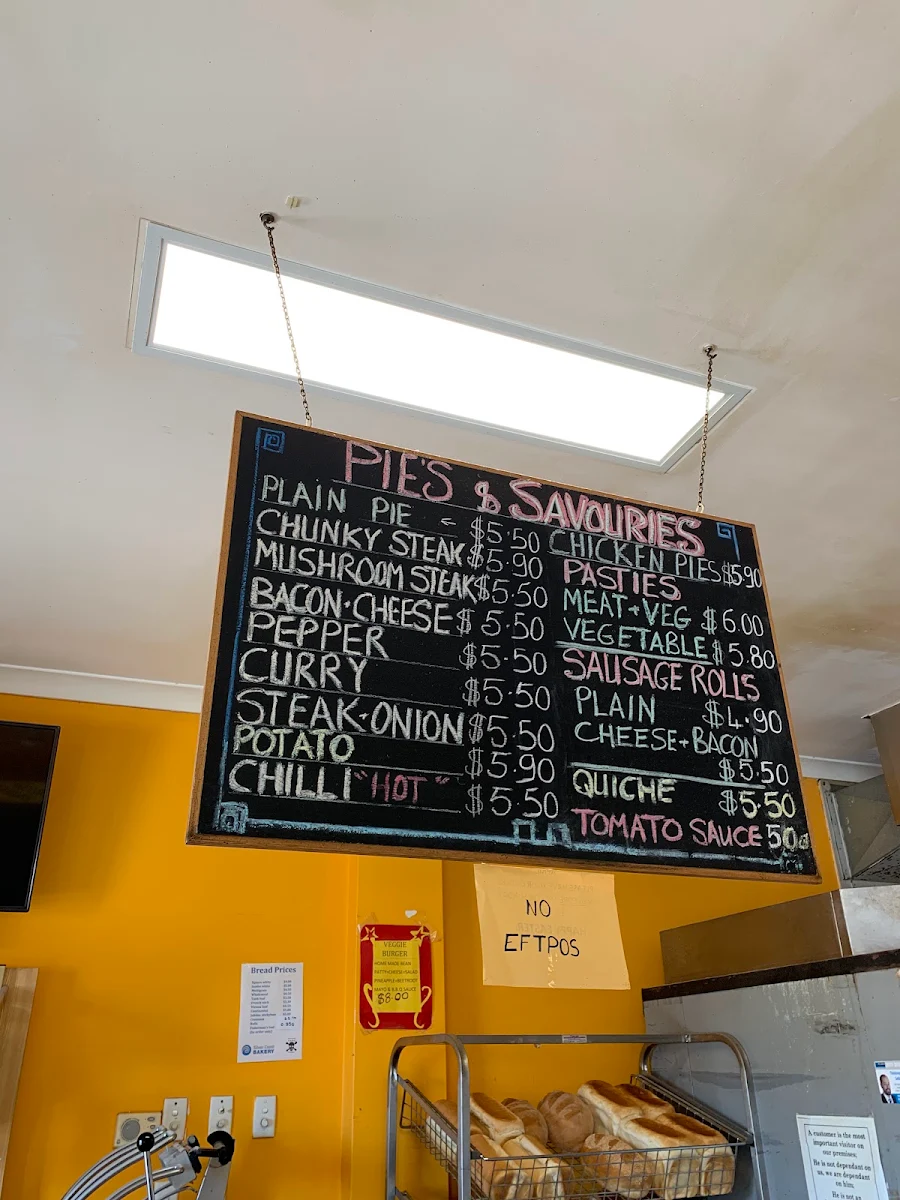 PIE'S & SAVOURIES
PLAIN PIE - $5.50
CHUNKY STEAK $5.90
MUSHROOM STEAK $5.50
BACON·CHEESE $5.50
PEPPER $5.50
CURRY $5.50
STEAK·ONION $5.50
POTATO $5.90
CHILLI "HOT" $5.50
CHICKEN PIES $5.90
PASTIES
MEAT+VEG $6.00
VEGETABLE $5.80
SAUSAGE ROLLS
PLAIN $4.90
CHEESE+BACON
$5.50
QUICHE $5.50
TOMATO SAUCE 50c
NO
EFTPOS
VEGGIE
BURGER
HOME MADE BEAN
$8.00
Bread Prices
BAKERY
A customer is the most
important visitor on
our premises;
He is not dependant on
us, we are dependant
on him;
He is not an